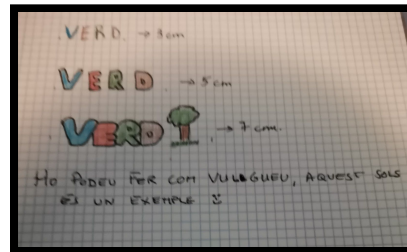 VERD. → 3cm
VERD → 5cm
VERD → 7cm.
HO PODEU FER COM VULGUEU, AQUEST SOLS
ÉS UN EXEMPLE